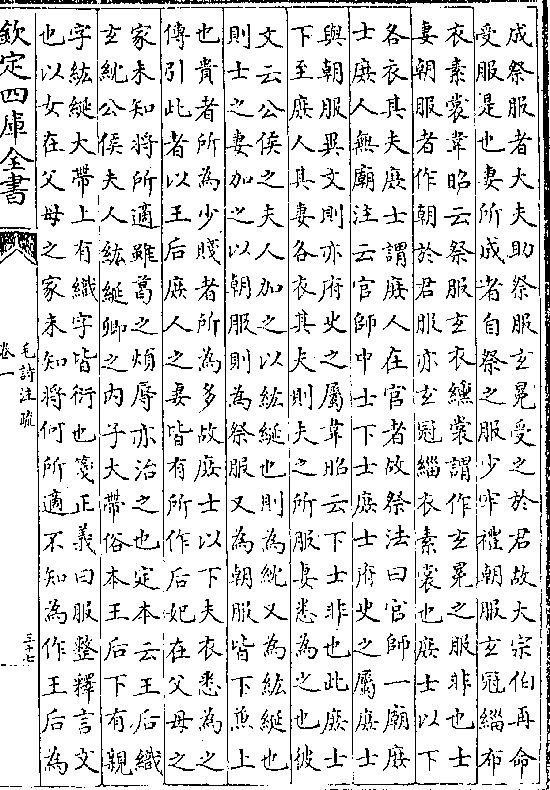 成祭服者大夫助祭服玄冕受之於君故大宗伯再命
受服是也妻所成者自祭之服少牢禮朝服玄冠緇布
衣素裳韋昭云祭服玄衣纁裳謂作玄冕之服非也士
妻朝服者作朝於君服亦玄冠緇衣素裳也庶士以下
各衣其夫庶士謂庶人在官者故祭法曰官師一廟庶
士庶人無廟注云官師中士下士庶士府史之屬庶士
與朝服異文則亦府史之屬韋昭云下士非也此庶士
下至庶人其妻各衣其夫則夫之所服妻悉為之也彼
文云公侯之夫人加之以紘綖也則為紞又為紘綖也
則士之妻加之以朝服則為祭服又為朝服皆下兼上
也貴者所為少賤者所為多故庶士以下夫衣悉為之
傳引此者以王后庶人之妻皆有所作后妃在父母之
家未知將所適雖葛之煩辱亦治之也定本云王后織
玄紞公侯夫人紘綖卿之內子大帶俗本王后下有親
字紘綖大帶上有織字皆衍也箋正義曰服整釋言文
也以女在父母之家未知將何所適不知為作王后為
欽定四庫全書
毛詩注疏
卷一
三十七